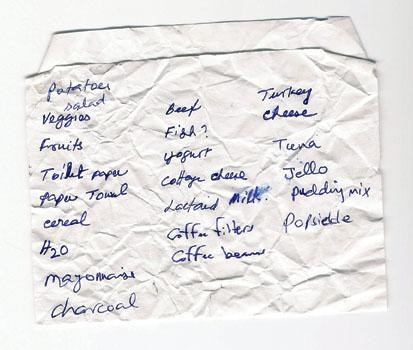 Potatoe
salad
Veggies
Fruits
Toilet paper
Paper Towel
cereal
H20
mayonnaise
charcoal
Beef
Fish?
yogurt
Cottage cheese
Lactaid Milk.
Coffee filters
Coffee beans
Turkey
cheese
Tuna
Jello
pudding mix
Popsickle